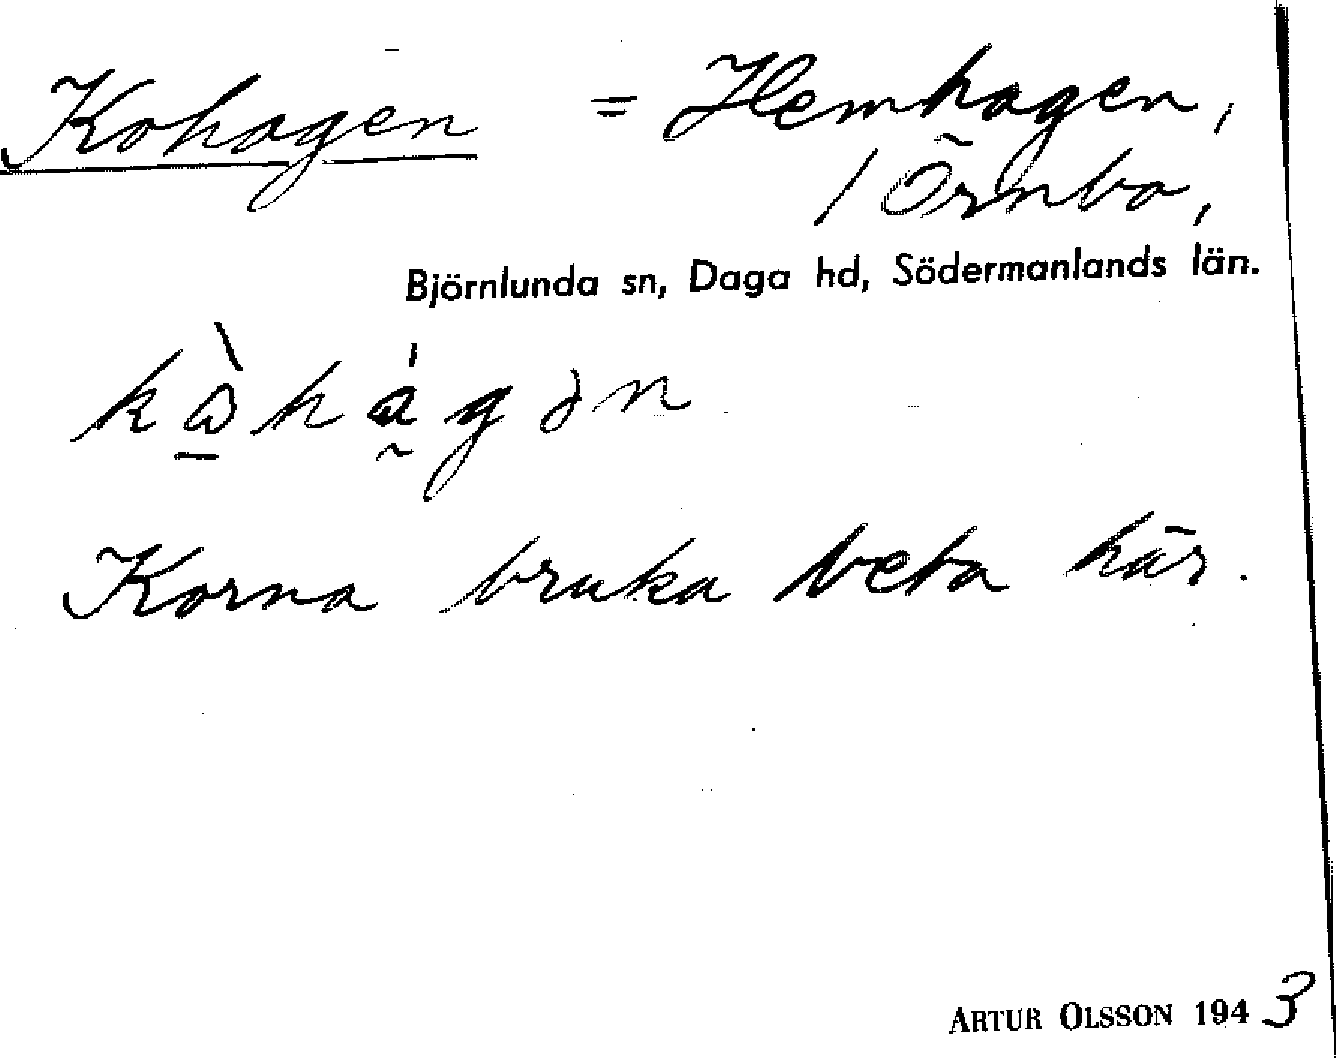 Kohagen = Hemhagen,
/ Örnbo,
Björnlunda sn, Daga hd, Södermanlands län.
kὼhágən
Korna bruka beta här.
ARTUR OLSSON 1943